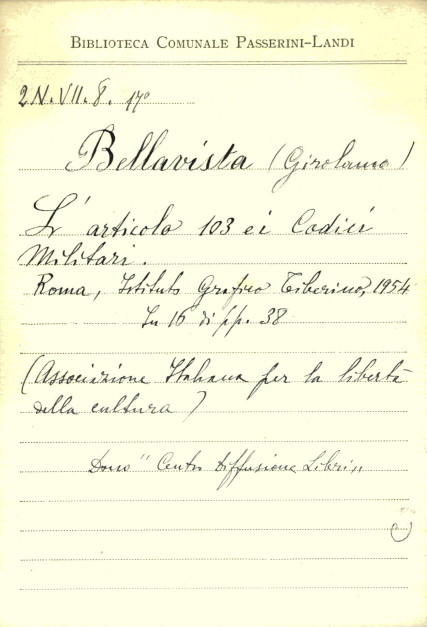 BIBLIOTECA COMUNALE PASSERINI-LANDI
2N.VII.8. 17°
Bellavista (Girolamo)
L'articolo 103 e i Codici
Militari.
Roma, Istituto Grafico Tiberino, 1954
In 16 di pp. 38
(Associazione Italiana per la libertà
della cultura)
Dono "Centro Diffusione Libri"